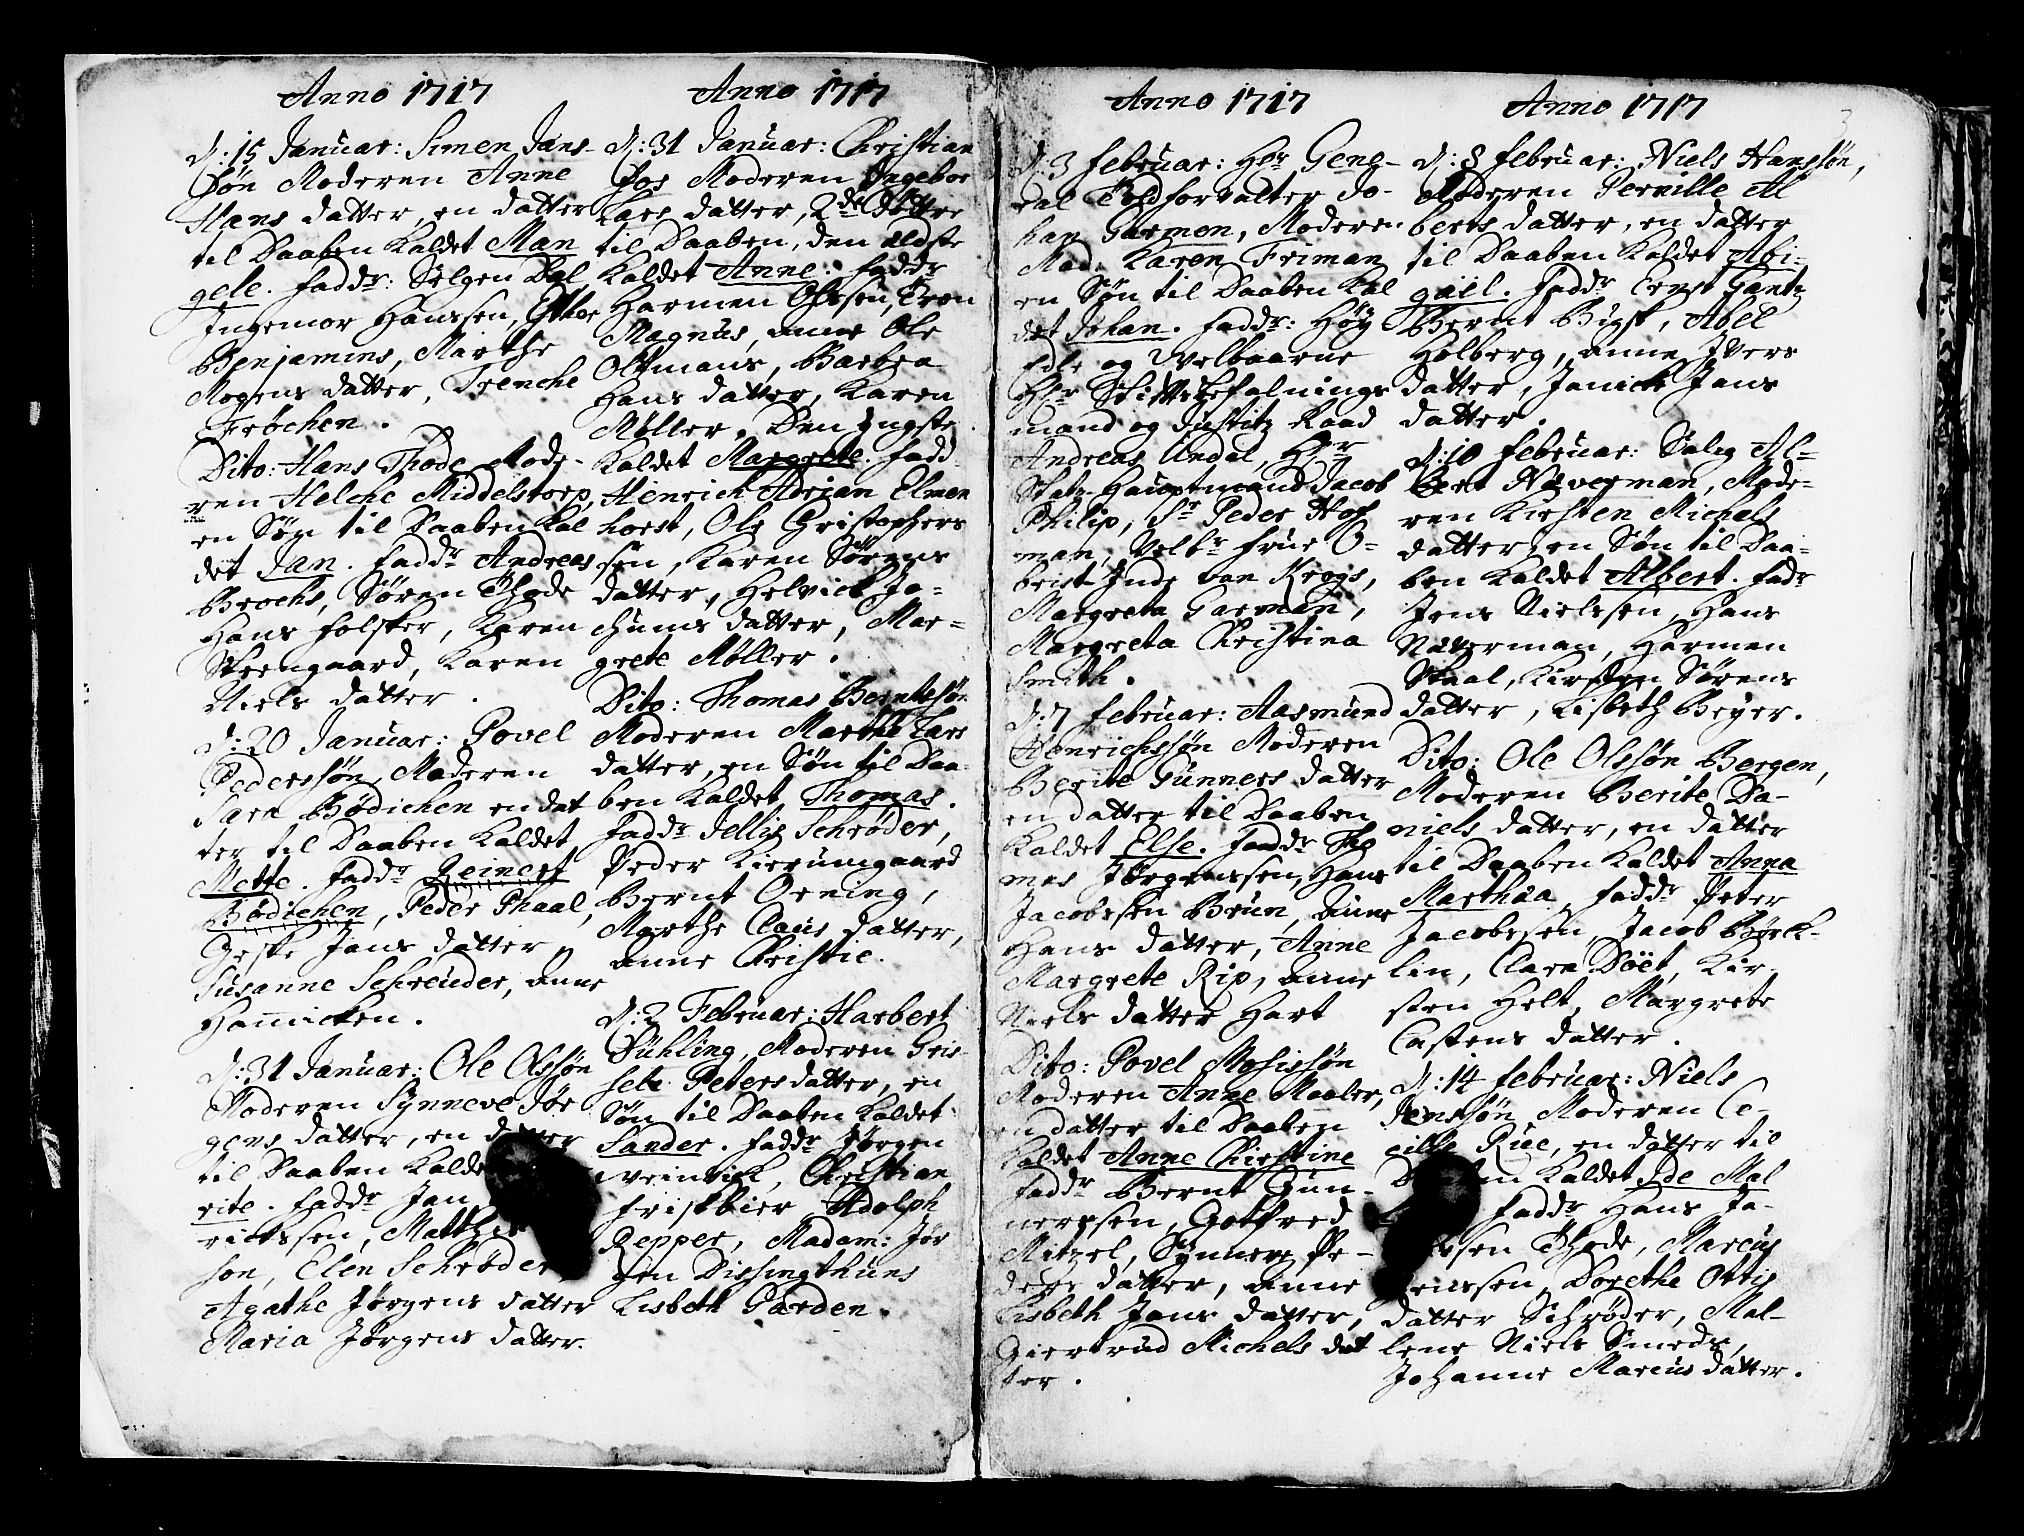 Anno 1717
d: 15 Januar: Simen Jans-
søn Moderen Anne
Hans datter, en datter
til Daaben Kaldet Man
gele. Fadd:r: Sølgen Dal
Ingemor Hanssen, Esther
Benjamins, Marthe
Mogens datter, Trenche
Frøchen.
Dito: Hans Thode Mode-
ren Helche Middelstorp,
en Søn til Daaben Kal
det Jan. Fadd:r Andreas
Brochs, Søren Thode
Hans Folster, Karen
Steengaard, Karen
Niels datter.
d: 20 Januar: Povel
Pederssøn, Moderen
Sara Bødichen en dat
ter til Daaben Kaldet
Mette. Fadd:r Reinert
Bødichen, Peder Thaal,
Geske Jans datter
Susanne Schreuder, Anne
Hannicken.
d: 31 Januar: Ole Olssøn
Moderen Synneve Jør
gens datter, en datter
til Daaben Kalde
rite. Fadd:r Jan
richssen, Matthis
søn, Elen Schrøder,
Agathe Jørgens datter
Maria Jørgens datter.
Anno 1717
d: 31 Januar: Christian
Fos Moderen Ingebor
Lars datter, 2de Døttre
til Daaben, den ældste
Kaldet Anne. Fadd:r
Harmen Olssen, Iven
Magnus, Anne Ole
Oltmans, Barbra
Hans datter, Karen
Møller. Den yngste
Kaldet Margrete. Fadd:
Henrich Adrian Elmen
horst, Ole Cristophers
sen, Karen Sørens
datter, Helvich Jo-
chums datter, Mar-
grete Møller.
Dito: Thomas Berntssøn
Moderen Marthe Lars
datter, en Søn til Daa
ben Kaldet Thomas.
Fadd:r Jellis Schrøder,
Peder Kierumgaard
Bernt Orning,
Marthe Claus datter,
Anne Christie.
d: 2 Februar: Harbert
Sühling, Moderen Gris-
sele Peters datter, en
Søn til Daaben Kaldet
Sander. Fadd:r Jørgen
Weinvich, Christian
Friskbier, Adolph
Repper, Madam: Jør
gen Dissingthuns
Lisbeth Garden.
Anno 1717
d: 3 Februar: Hr Gene-
ral Toldforvalter Jo-
han Garmon, Moderen
Mad: Karen Friman
en Søn til Daaben Kal
det Johan. Fadd:r: Høy
Edle og Velbaarne
Hr Stiftsbefalnings
mand og Justitz Raad
Andreas Undal, Hr
Stats-Hauptmand Jacob
Philip, Sr Peder Hof
man, Velbr Frue O-
berst Inde von Krogs,
Margreta Garman,
Margreta Christina
Smith.
d: 7 Februar: Aasmund
Henrichssøn Moderen
Berite Gunners datter
en datter til Daaben
Kaldet Else. Fadd:r Tho
mes Jørgenssen, Hans
Jacobssen Brun, Anne
Hans datter, Anne
Margrete Rip, Anne
Niels datter Hart
Dito: Povel Mosissøn
Moderen Anne Maaler,
en datter til Daaben
Kaldet Anne Christine
Fadd:r Bernt Gun-
nerssen, Gotfred
Mitzel, Synneve Pe-
ders datter, Anne
Lisbeth Jans datter,
Giertrud Michels dat
ter.
Anno 1717
3
d: 8 Februar: Niels Hanssøn,
Moderen Pernille Al
berts datter, en datter
til Daaben Kaldet Abi-
gaiel. Fadd:r Ernst Gantz
Bernt Bugt, Abel
Holberg, Anne Ivers
datter, Janich Jans
datter.
d: 10 Februar: Salig Al-
bert Næverman, Mode-
ren Kirsten Michels
datter, en Søn til Daa-
ben Kaldet Albert. Fadr
Jens Nielssen, Hans
Næverman, Harmen
Staal, Kirsten Sørens
datter, Lisbeth Beyer.
Dito: Ole Olssøn Bergen,
Moderen Berite Da-
niels datter, en datter
til Daaben Kaldet Anna
Marthaa, Fadd:r Peter
Jacobssen, Jacob Børk-
lin, Clara Döet, Kir
sten Helt, Margrete
Castens datter.
d: 14 Februar: Niels
Jenssøn Moderen Ce-
cille Rue, en datter til
Kaldet Ide Mal
Fadd:r Hans Ja-
ssen Thode, Marcus
enssen, Dorethe Ottis
datter Schrøder, Mal-
lene Niels Smeds,
Johanne Marcus datter.